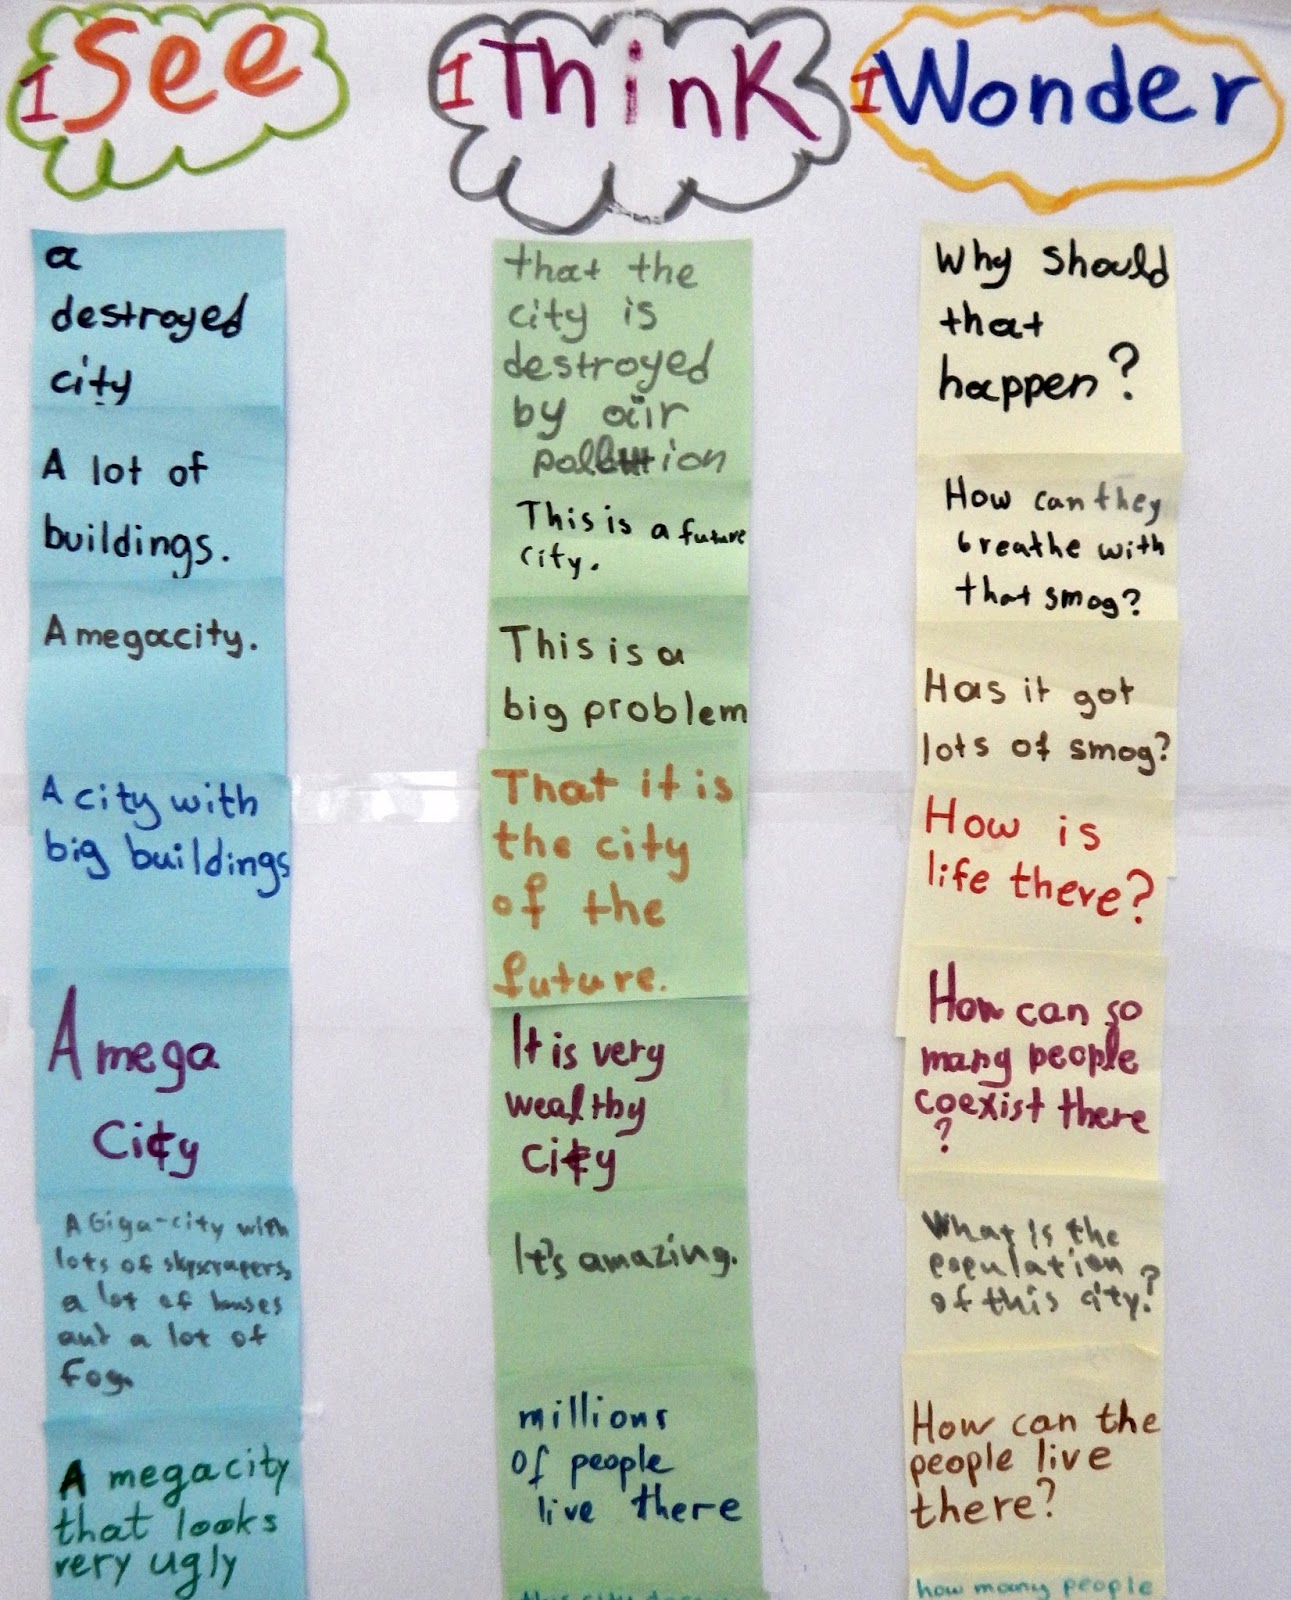 I See
a
destroyed
city
A lot of
buildings.
A megacity.
A city with
big buildings
A mega
City
A Giga-city with
lots of skyscrapers,
a lot of houses
and a lot of
fog.
A megacity
that looks
very ugly
I Think
that the
city is
destroyed
by air
pollution
This is a future
city.
This is a
big problem
That it is
the city
of the
future.
It is very
wealthy
city
It's amazing.
millions
of people
live there
I Wonder
Why should
that
happen?
How can they
breathe with
that smog?
Has it got
lots of smog?
How is
life there?
How can so
many people
coexist there
?
What is the
population
of this city?
How can the
people live
there?
how many people